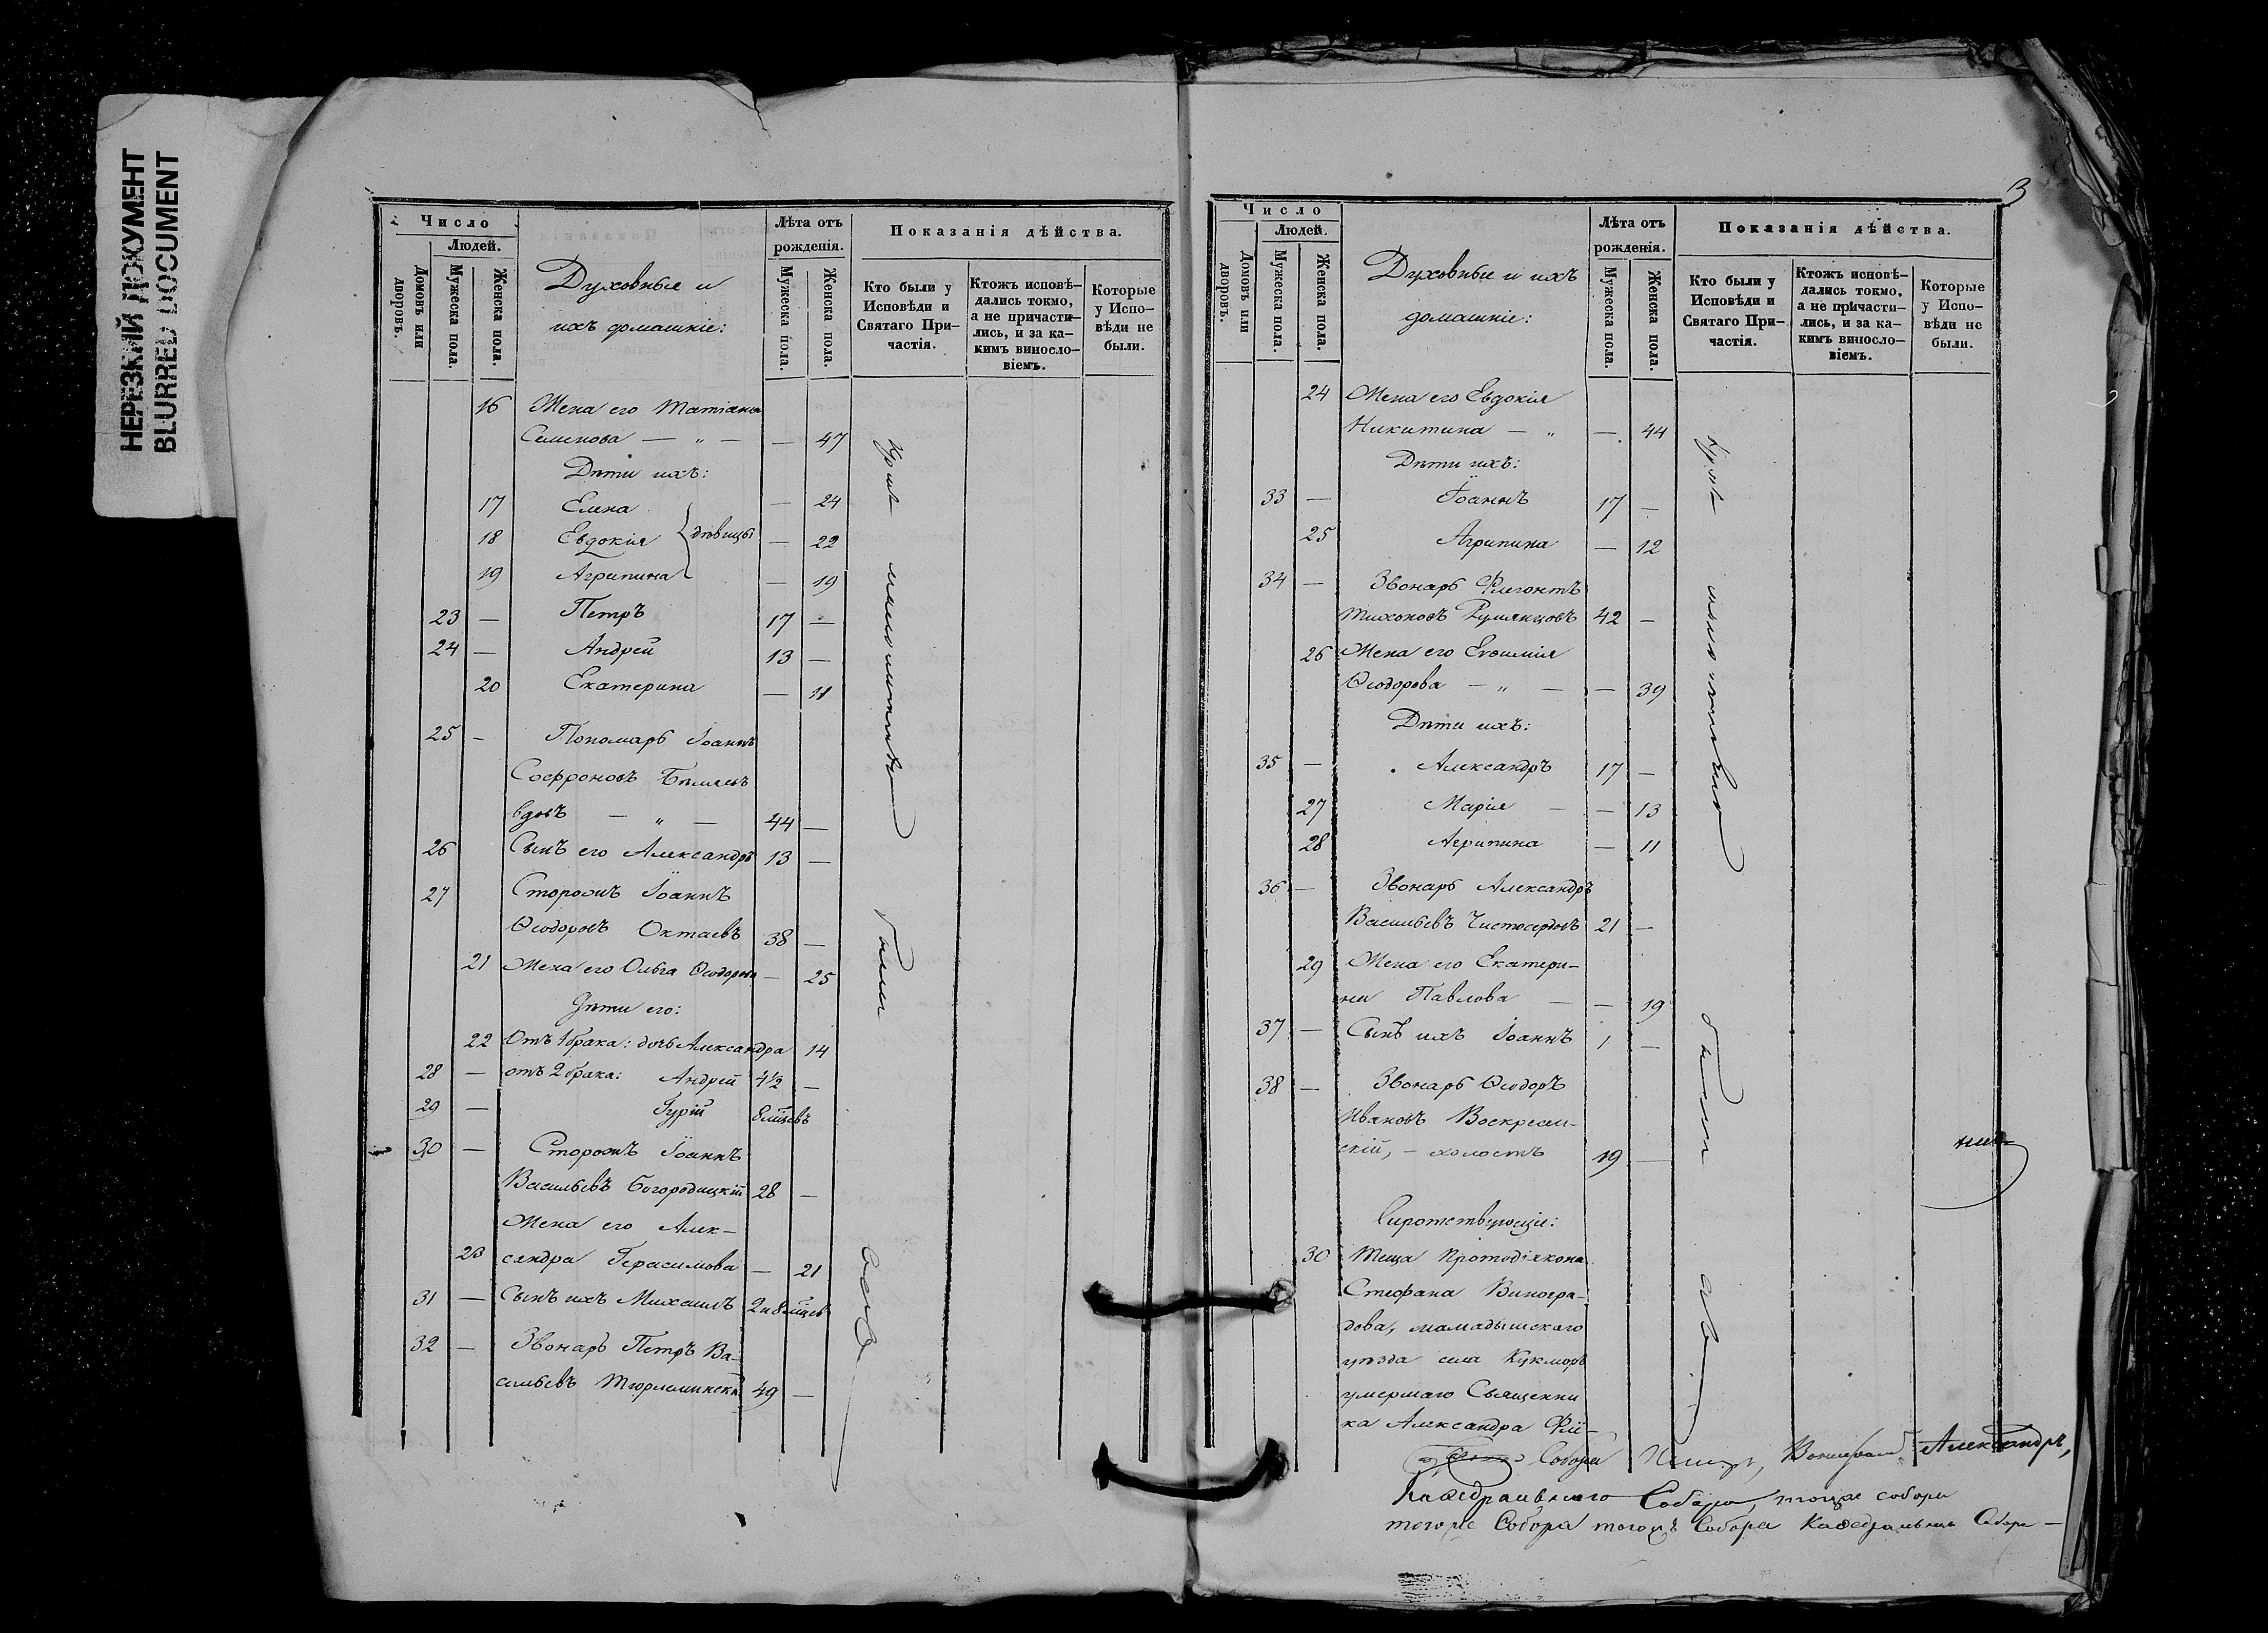 НЕРЕЗКИЙ ДОКУМЕНТ
BLURRED DOCUMENT
Число
Людей.
Домовъ или дворовъ.
Мужеска пола.
Женска пола.
Духовныя и
ихъ домашніе:
Лѣта отъ рожденія.
Мужеска пола.
Женска пола.
Показанія дѣйства.
Кто были у Исповѣди и Святаго Причастія.
Ктожъ исповѣдались токмо, а не причастились, и за какимъ винословіемъ.
Которые у Исповѣди не были.
16 Жена его Татіана
Семенова — „ — — 47
Дѣти ихъ:
17 Елена — 24
18 Евдокія } дѣвицы — 22
19 Агрипина — 19
23 — Петръ 17 —
24 — Андрей 13 —
20 Екатерина — 11
25 — Пономарь Іоаннъ
Софроновъ Бѣляевъ
вдовъ — „ — 44 —
26 Сынъ его Александръ 13 —
27 Сторожъ Іоаннъ
Ѳеодоровъ Октаевъ 38 —
21 Жена его Ольга Ѳеодорова — 25
Дѣти его:
22 Отъ 1 брака: дочь Александра 14
28 — отъ 2 брака: Андрей 4½ —
29 — Гурій 8 мцевъ
30 — Сторожъ Іоаннъ
Васильевъ Богородицкій 28 —
Жена его Алек-
23 сандра Герасимова — 21
31 — Сынъ ихъ Михаилъ 2 и 8 мцев
32 — Звонарь Петръ Ва-
сильевъ Тюрлеминскій 49 —
были
3
Число
Людей.
Домовъ или дворовъ.
Мужеска пола.
Женска пола.
Духовныя и ихъ
домашніе:
Лѣта отъ рожденія.
Мужеска пола.
Женска пола.
Показанія дѣйства.
Кто были у Исповѣди и Святаго Причастія.
Ктожъ исповѣдались токмо, а не причастились, и за какимъ винословіемъ.
Которые у Исповѣди не были.
24 Жена его Евдокія
Никитина — „ — 44
Дѣти ихъ:
33 — Іоаннъ 17 —
25 Агрипина — 12
34 — Звонарь Флегонтъ
Тихоновъ Румянцовъ 42 —
26 Жена его Евѳимія
Ѳеодорова — „ — — 39
Дѣти ихъ:
35 — Александръ 17 —
27 Марія — — 13
28 Агрипина — 11
36 — Звонарь Александръ
Васильевъ Чистосердовъ 21 —
29 Жена его Екатери-
на Павлова — — 19
37 — Сынъ ихъ Іоаннъ 1 —
38 — Звонарь Ѳеодоръ
Ивановъ Воскресен-
скій, — холостъ 19 —
Сиротствующіе:
30 Теща Протодіакона
Стефана Виногра-
дова, мамадышскаго
уѣзда села Кукморъ
умершаго Священни
ка Александра
были
Собора Александръ,
Каѳедральнаго Собора, тогоже собора
тогоже Собора тогожъ Собора Каѳедральнаго Собора —